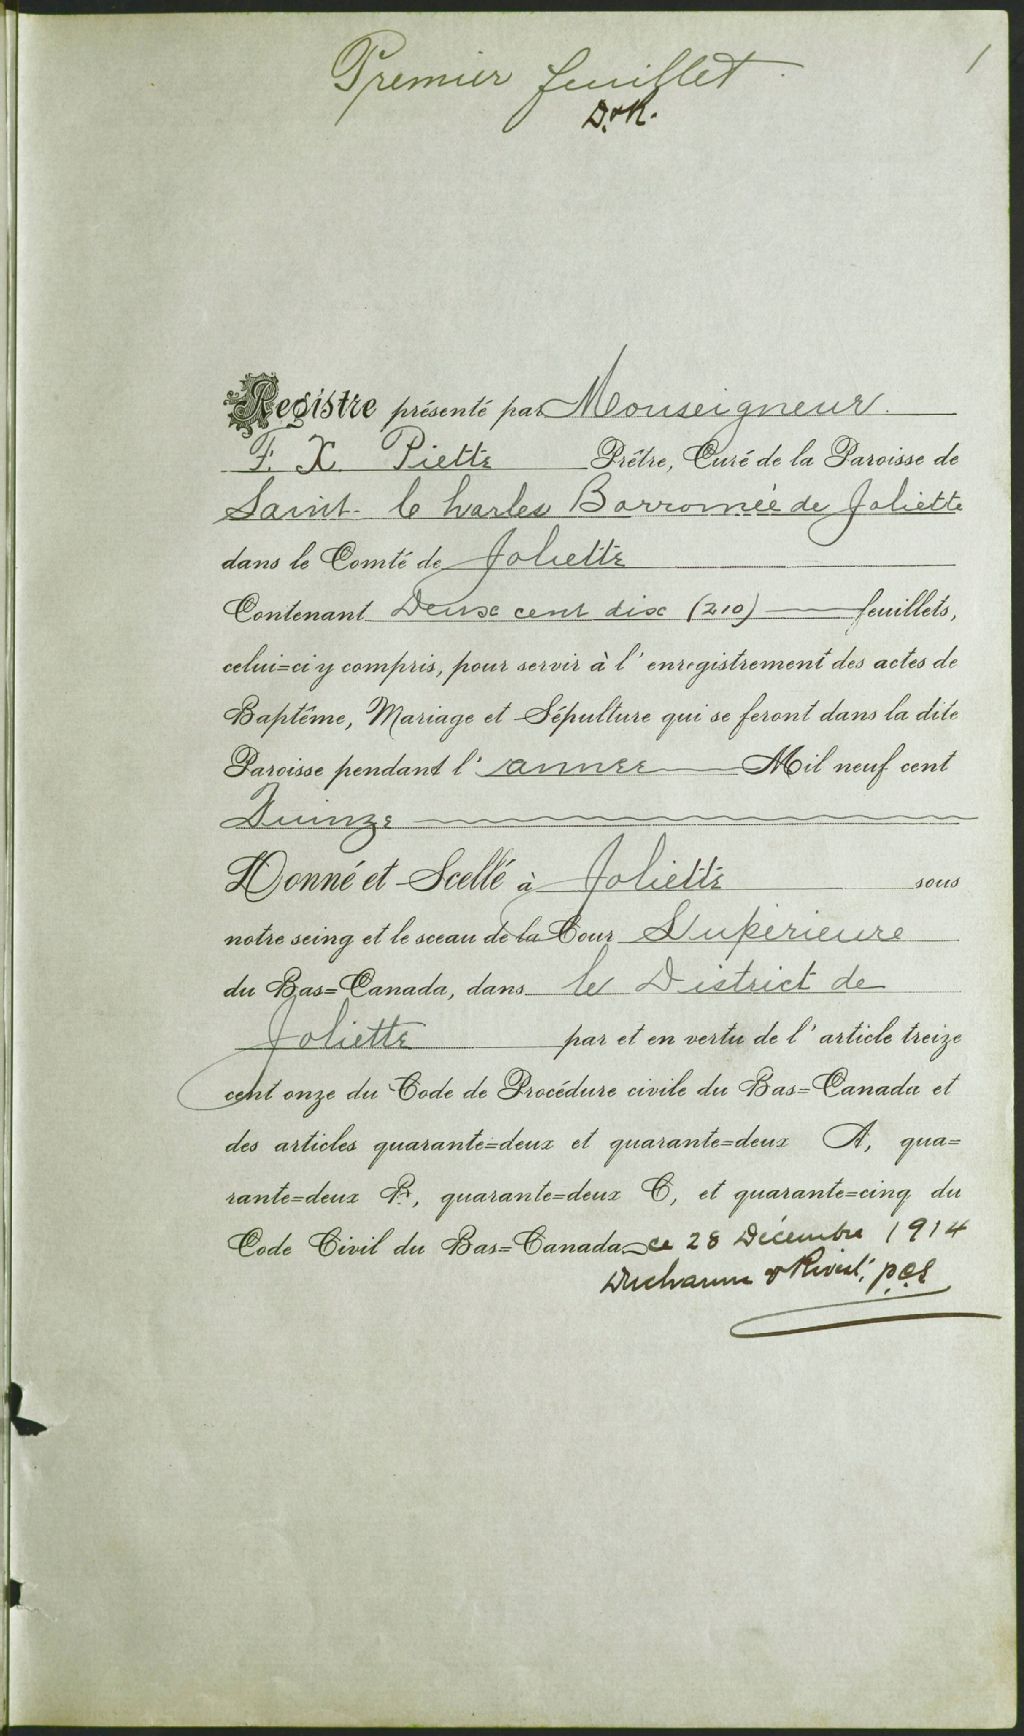 Premier feuillet
1
D. & R.
Registre présenté par Monseigneur.
F. X. Piette Prêtre, Curé de la Paroisse de
Saint-Charles Borromée de Joliette
dans le Comté de Joliette
Contenant Deux cent dix (210) feuillets,
celui=ci y compris, pour servir à l'enregistrement des actes de
Baptême, Mariage et Sépulture qui se feront dans la dite
Paroisse pendant l'année Mil neuf cent
Quinze
Donné et Scellé à Joliette sous
notre seing et le sceau de la Cour Supérieure
du Bas=Canada, dans le District de
Joliette par et en vertu de l'article treize
cent onze du Code de Procédure civile du Bas=Canada et
des articles quarante=deux et quarante=deux A, qua=
rante=deux B, quarante=deux C, et quarante=cinq du
Code Civil du Bas=Canada ce 28 Décembre 1914
Ducharme & Rivest, p.c.s